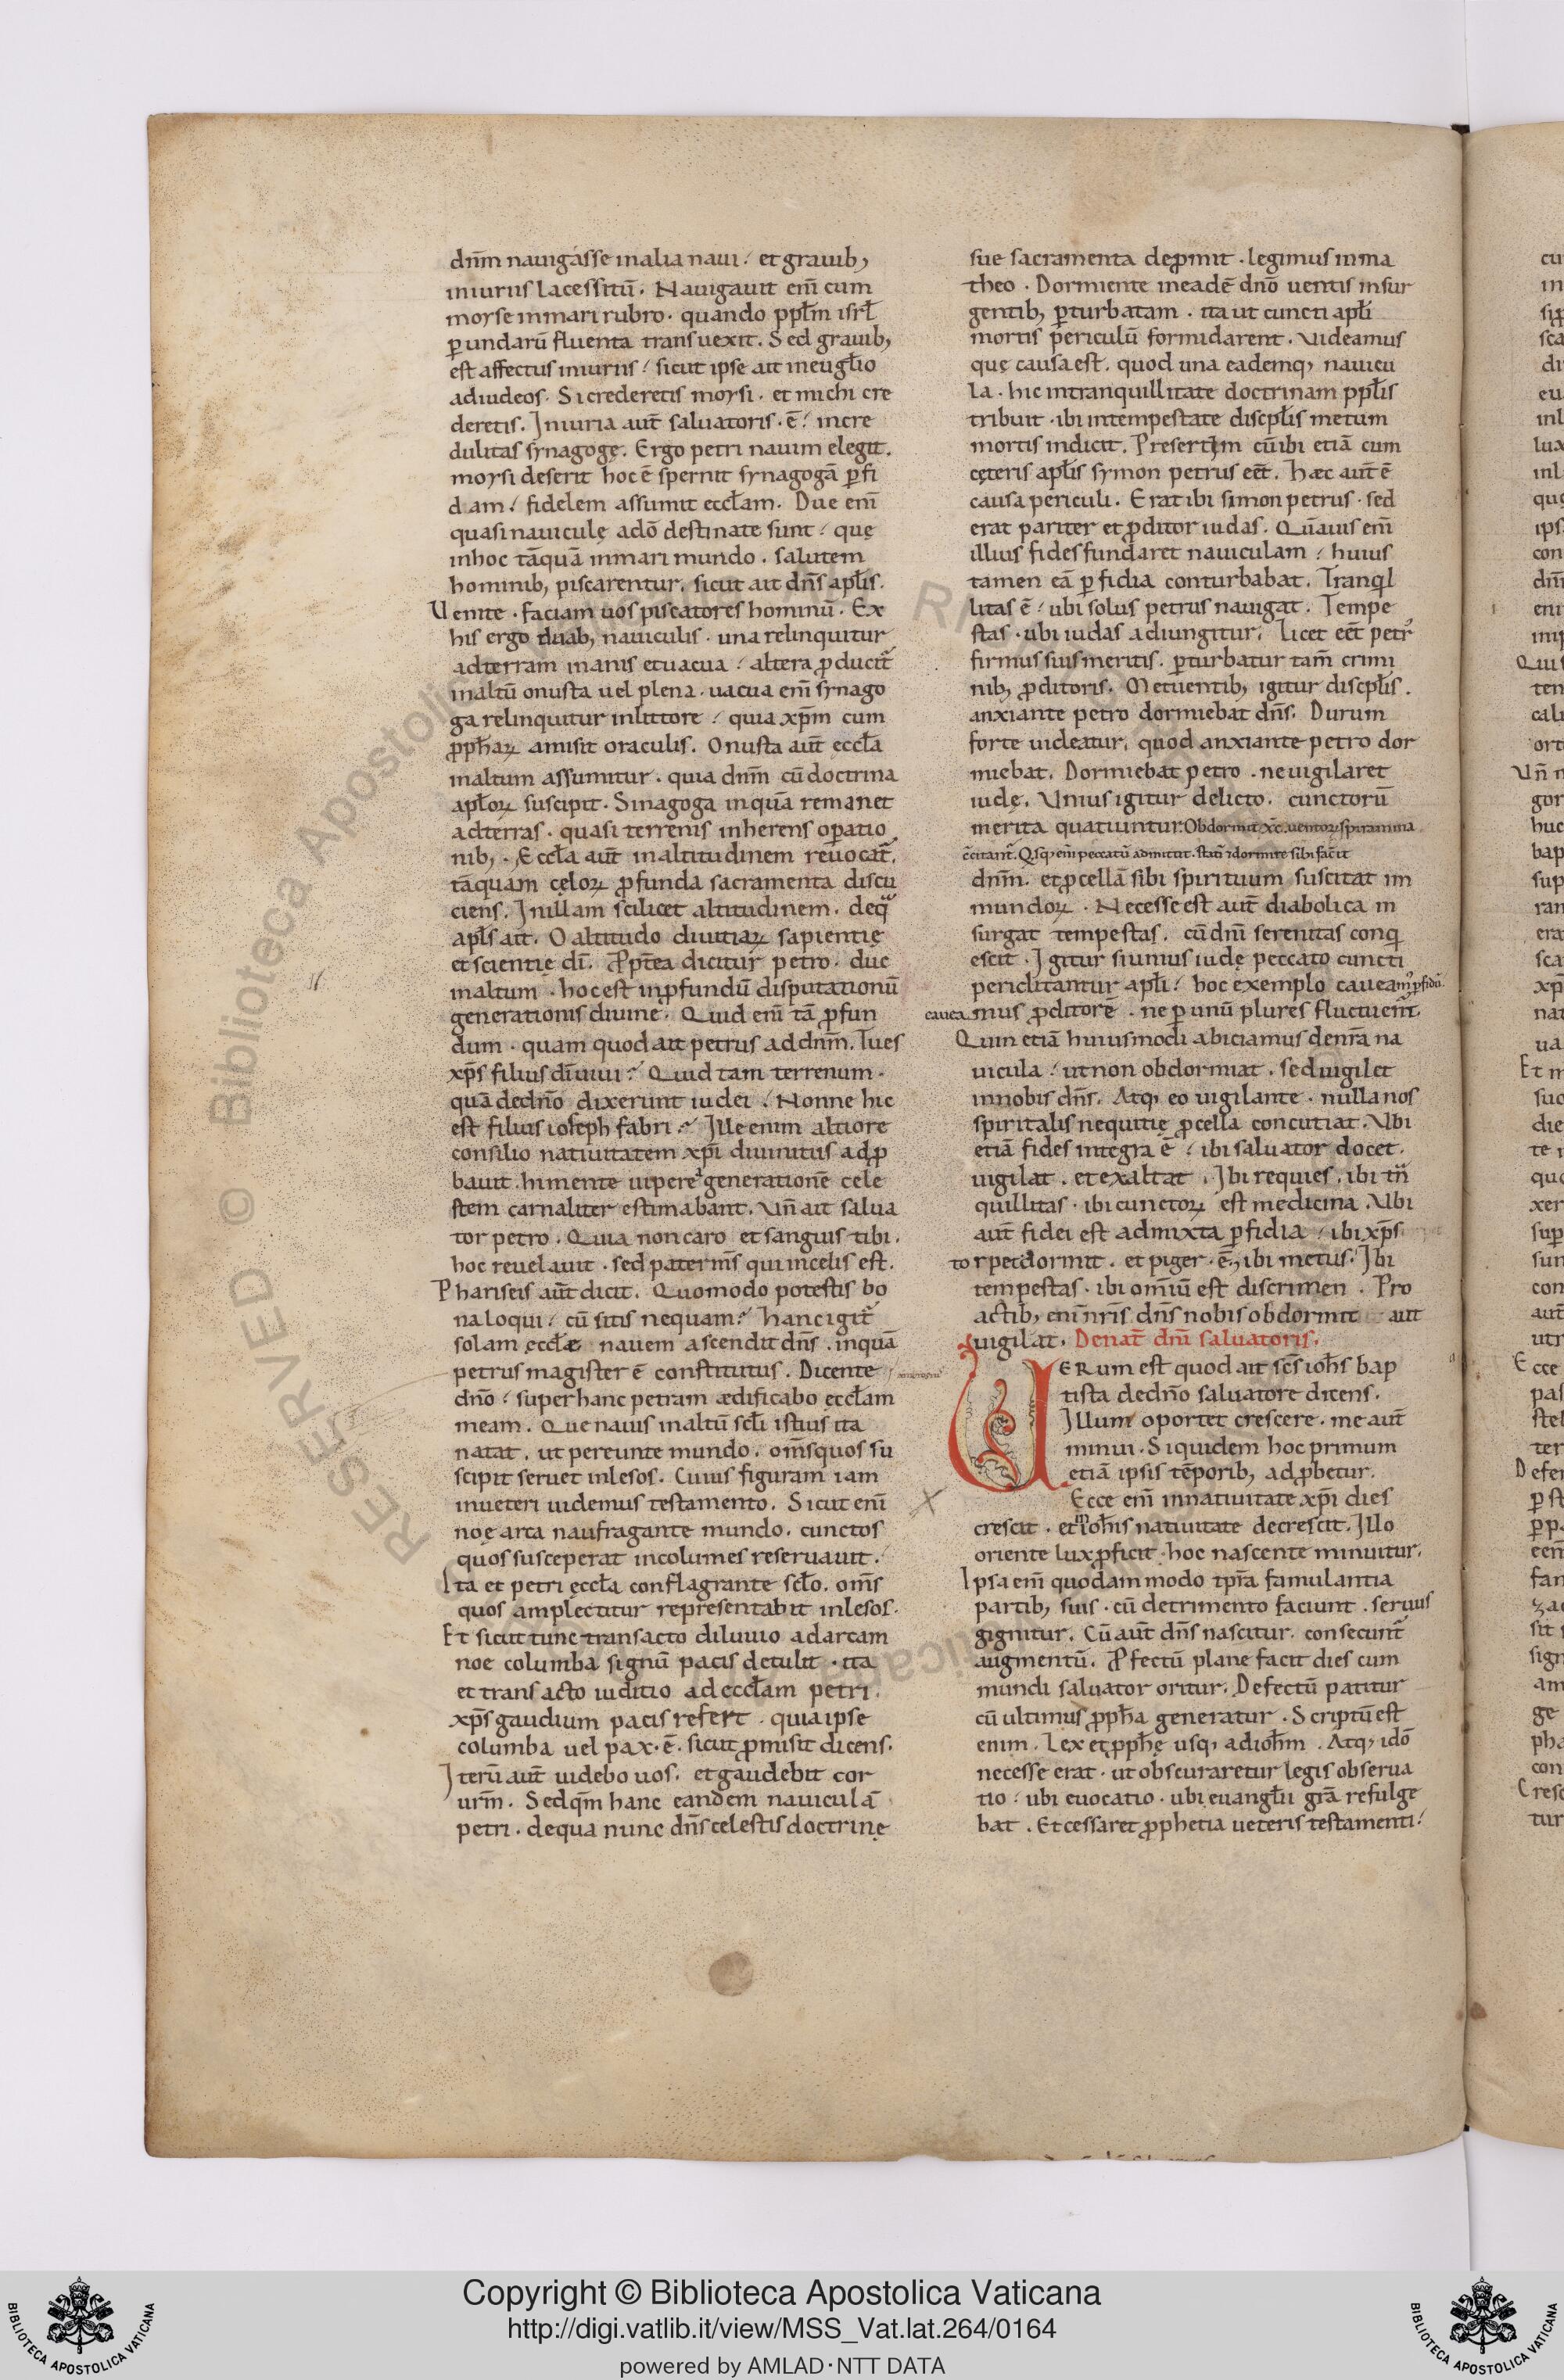 dn̄m nauigasse in alia naui. et grauib;
iniuriis lacessitū. Nauigauit eni̅ cum
moyse in mari rubro. quando ppl̄m isrl̄
ꝑ undarū fluenta transuexit. Sed grauib;
est affectus iniuriis. sicut ipse ait in euḡlio
ad iudeos. Si crederetis moysi. et michi cre
deretis. Iniuria aut̄ saluatoris. ē. incre
dulitas synagogę. Ergo petri nauim elegit.
moysi deserit hoc ē spernit synagogā ꝑfi
dam. fidelem assumit eccl̄am. Due eni̅
quasi nauiculę a dō destinate sunt. quę
in hoc tāquā in mari mundo. salutem
hominib; piscarentur. sicut ait dn̄s apl̄is.
Uenite. faciam uos piscatores hominū. Ex
his ergo duab; nauiculis. una relinquitur
ad terram inanis et uacua. altera ꝓducit᷑
in altū onusta uel plena. uacua eni̅ synago
ga relinquitur in littore. quia xp̄m cum
ꝓph̄aꝝ amisit oraculis. Onusta aut̄ eccl̄a
in altum assumitur. quia dn̄m cū doctrina
apl̄oꝝ suscipit. Sinagoga inquā remanet
ad terras. quasi terrenis inherens oꝑatio
nib;. Eccl̄a aut̄ in altitudinem reuocat᷑.
tāquam cęloꝝ ꝓfunda sacramenta discu
ciens. In illam scilicet altitudinem. de q̄
apl̄s ait. O altitudo diuitiaꝝ sapientię
et scientię dī. Ꝓpt̄ea dicitur petro. duc
in altum. hoc est in ꝓfundū disputationū
generationis diuine. Quid eni̅ tā ꝓfun
dum. quam quod ait petrus ad dn̄m. Tu es
xp̄s filius dī uiui. Quid tam terrenum.
quā de dn̄o dixerunt iudei. Nonne hic
est filius ioseph fabri. Ille enim altiore
consilio natiuitatem xp̄i diuinitus adꝓ
bauit. hi mente uipere generationē cele
stem carnaliter estimabant. Un̄ ait salua
tor petro. Quia non caro et sanguis tibi.
hoc reuelauit. sed pater m̄s qui in celis est.
Phariseis aut̄ dicit. Quomodo potestis bo
na loqui. cū sitis nequam. Hanc igit᷑
solam eccl̄æ nauem ascendit dn̄s. in quā
petrus magister ē constitutus. Dicente
dn̄o. super hanc petram ædificabo eccl̄am
meam. Que nauis in altū scl̄i istius ita
natat. ut pereunte mundo. om̄s quos su
scipit seruet inlesos. Cuius figuram iam
in ueteri uidemus testamento. Sicut eni̅
noę arca naufragante mundo. cunctos
quos susceperat incolumes reseruauit.
Ita et petri eccl̄a conflagrante scl̄o. om̄s
quos amplectitur representabit inlesos.
Et sicut tunc transacto diluuio ad arcam
noe columba signū pacis detulit. ita
et transacto iuditio ad eccl̄am petri.
xp̄s gaudium pacis refert. quia ipse
columba uel pax. ē. sicut ꝓmisit dicens.
Iterū aut̄ uidebo uos. et gaudebit cor
ur̄m. Sed qm̄ hanc eandem nauiculā
petri. de qua nunc dn̄s celestis doctrinę
sue sacramenta deꝓmit. legimus in ma
theo. Dormiente in eadē dn̄o uentis insur
gentib; ꝑturbatam. ita ut cuncti apl̄i
mortis periculū formidarent. Uideamus
quę causa est. quod una eademq; nauicu
la. hic in tranquillitate doctrinam ppl̄is
tribuit. ibi in tempestate discipl̄is metum
mortis indicit. Presertim cū ibi etiā cum
cęteris apl̄is symon petrus eēt. Hæc aut̄ ē
causa periculi. Erat ibi simon petrus. sed
erat pariter et ꝓditor iudas. Quāuis eni̅
illius fides fundaret nauiculam. huius
tamen eā ꝑfidia conturbabat. Tranqil
litas ē. ubi solus petrus nauigat. Tempe
stas. ubi iudas adiungitur. Licet eēt petr᷒
firmus suis meritis. ꝑturbatur tam̄ crimi
nib; ꝓditoris. Metuentib; igitur discipl̄is.
anxiante petro dormiebat dn̄s. Durum
forte uideatur. quod anxiante petro dor
miebat. Dormiebat petro. ne uigilaret
iudę. Unius igitur delicto. cunctorū
merita quatiuntur. Obdormit xp̄c. uentoꝝ spiramina
c̄citant᷑. Qsq; eni̅ peccatū admittit. statī ⁊ dormire sibi facit
dn̄m. et ꝓcellā sibi spirituum suscitat im
mundoꝝ. Necesse est aut̄ diabolica in
surgat tempestas. cū dn̄i serenitas conqi
escit. Igitur si unius iudę peccato cuncti
periclitantur apl̄i. hoc exemplo cauea
cauea mus ꝓditorē. ne ꝑ unū plures fluctuent᷑.
Quin etiā huiusmodi abiciamus de nr̄a na
uicula. ut non obdormiat. sed uigilet
in nobis dn̄s. Atq; eo uigilante. nulla nos
spiritalis nequitię ꝓcella concutiat. Ubi
etiā fides integra ē. ibi saluator docet.
uigilat. et exaltat. Ibi requies. ibi tn̄
quillitas. ibi cunctoꝝ est medicina. Ubi
aut̄ fidei est admixta ꝑfidia. ibi xp̄s
torpet dormit. et piger. ē. ibi metus. Ibi
tempestas. ibi omiū est discrimen. Pro
actib; eni̅ nr̄is dn̄s nobis obdormit aut
uigilat. De nat̄ dn̄i saluatoris.
UERum est quod ait sc̄s ioh̄s bap
tista de dn̄o saluatore dicens.
Illum oportet crescere. me aut̄
minui. Siquidem hoc primum
etiā ipsis tēporib; adꝓbetur.
Ecce eni̅ in natiuitate xp̄i dies
crescit. et in ioh̄is natiuitate decrescit. Illo
oriente lux ꝓficit. hoc nascente minuitur.
Ipsa eni̅ quodam modo tp̄ra famulantia
partib; suis. cū detrimento faciunt. seruus
gignitur. Cū aut̄ dn̄s nascitur. consecunt᷑
augmentū. Ꝓfectū plane facit dies cum
mundi saluator oritur. Defectū patitur
cū ultimus ꝓph̄a generatur. Scriptū est
enim. Lex et ꝓph̄ę usq; ad ioh̄m. Atq; idō
necesse erat. ut obscuraretur legis obserua
tio. ubi euocatio. ubi euangl̄ii gr̄a refulge
bat. Et cessaret ꝓphetia ueteris testamenti.
Copyright © Biblioteca Apostolica Vaticana
http://digi.vatlib.it/view/MSS_Vat.lat.264/0164
powered by AMLAD·NTT DATA